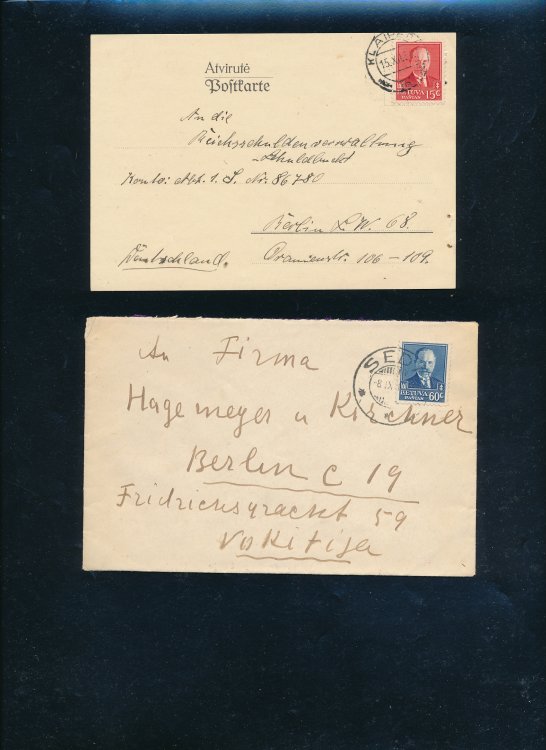 Atvirutė
Postkarte
KLAIP
15.X
15 c
LIETUVA
PAŠTAS
An die
Reichsschuldenverwaltung
-Schuldbuch
Konto: Abt. 1. S. Nr. 86780
Berlin S.W. 68.
Deutschland. Oranienstr. 106-109.
SED
-8.IX
LIETUVA 60c
PAŠTAS
An Firma
Hagemeyer u Kirchner
Berlin C 19
Fridrichsgracht 59
Vokitija